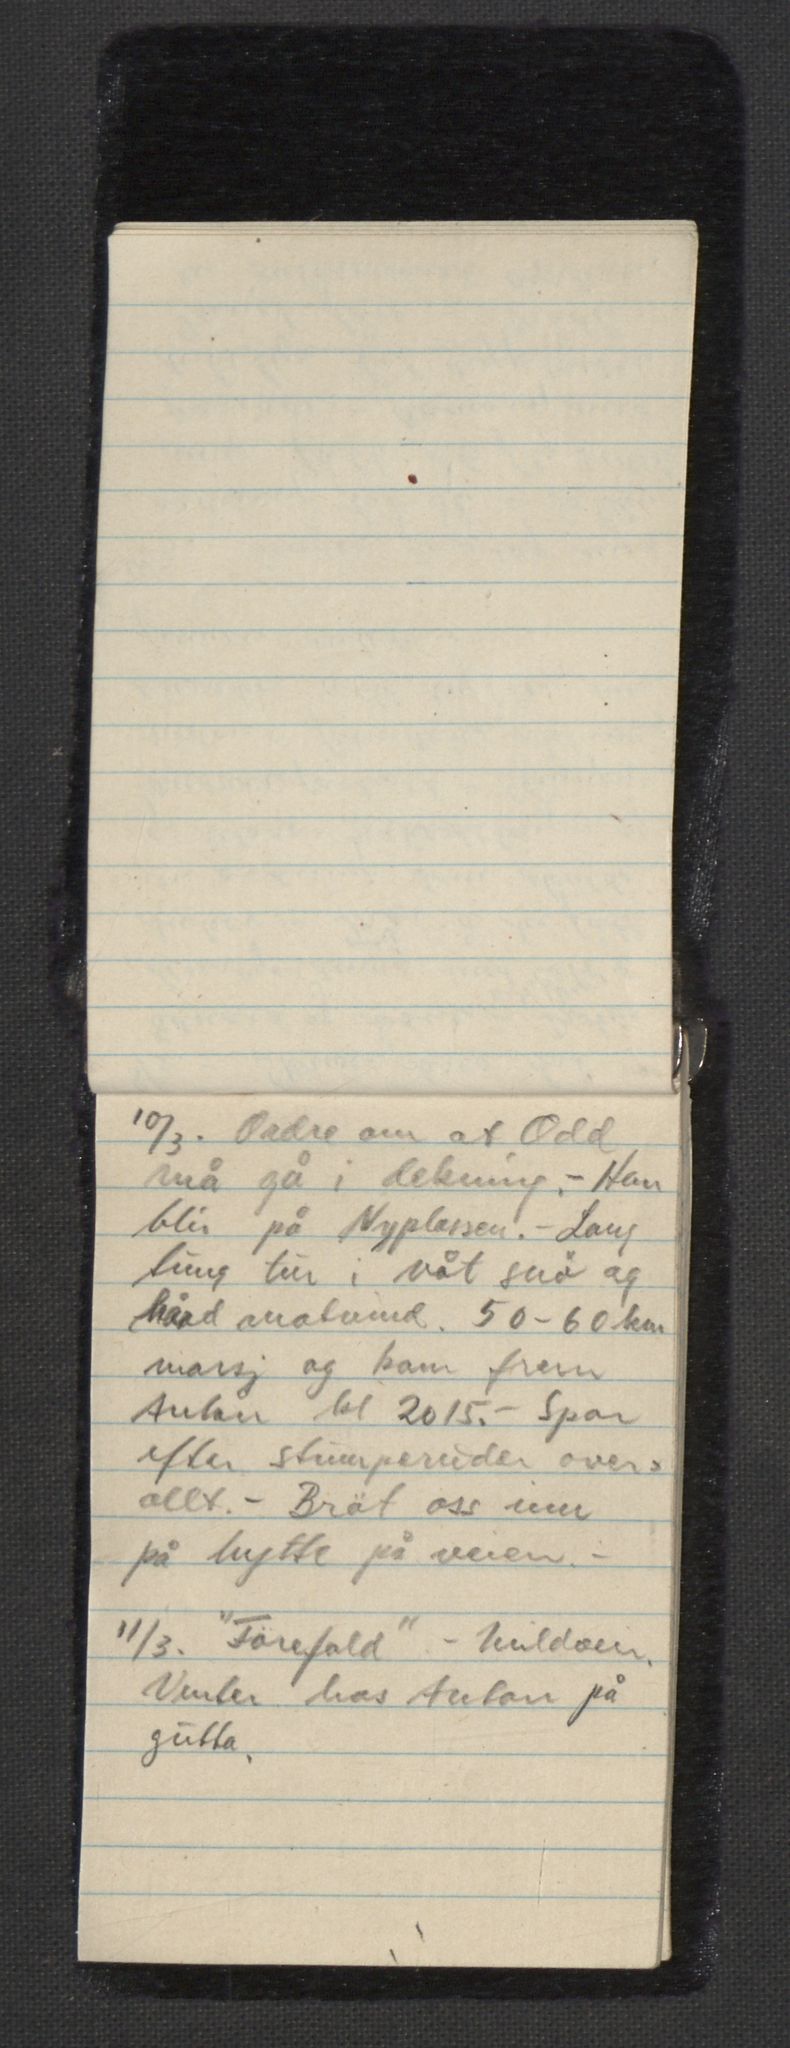 10/3. Ordre om at Odd
må gå i dekning. - Han
blir på Nyplassen. - Lang
tung tur i våt snö og
hård motvind. 50-60 km
marsj og kom frem
Anton kl 2015. - Spor
efter overs
allt. - Bröt oss inn
på hytte på veien. -
11/3. "Förefald" - Mildvær.
Venter hos Anton på
gutta.